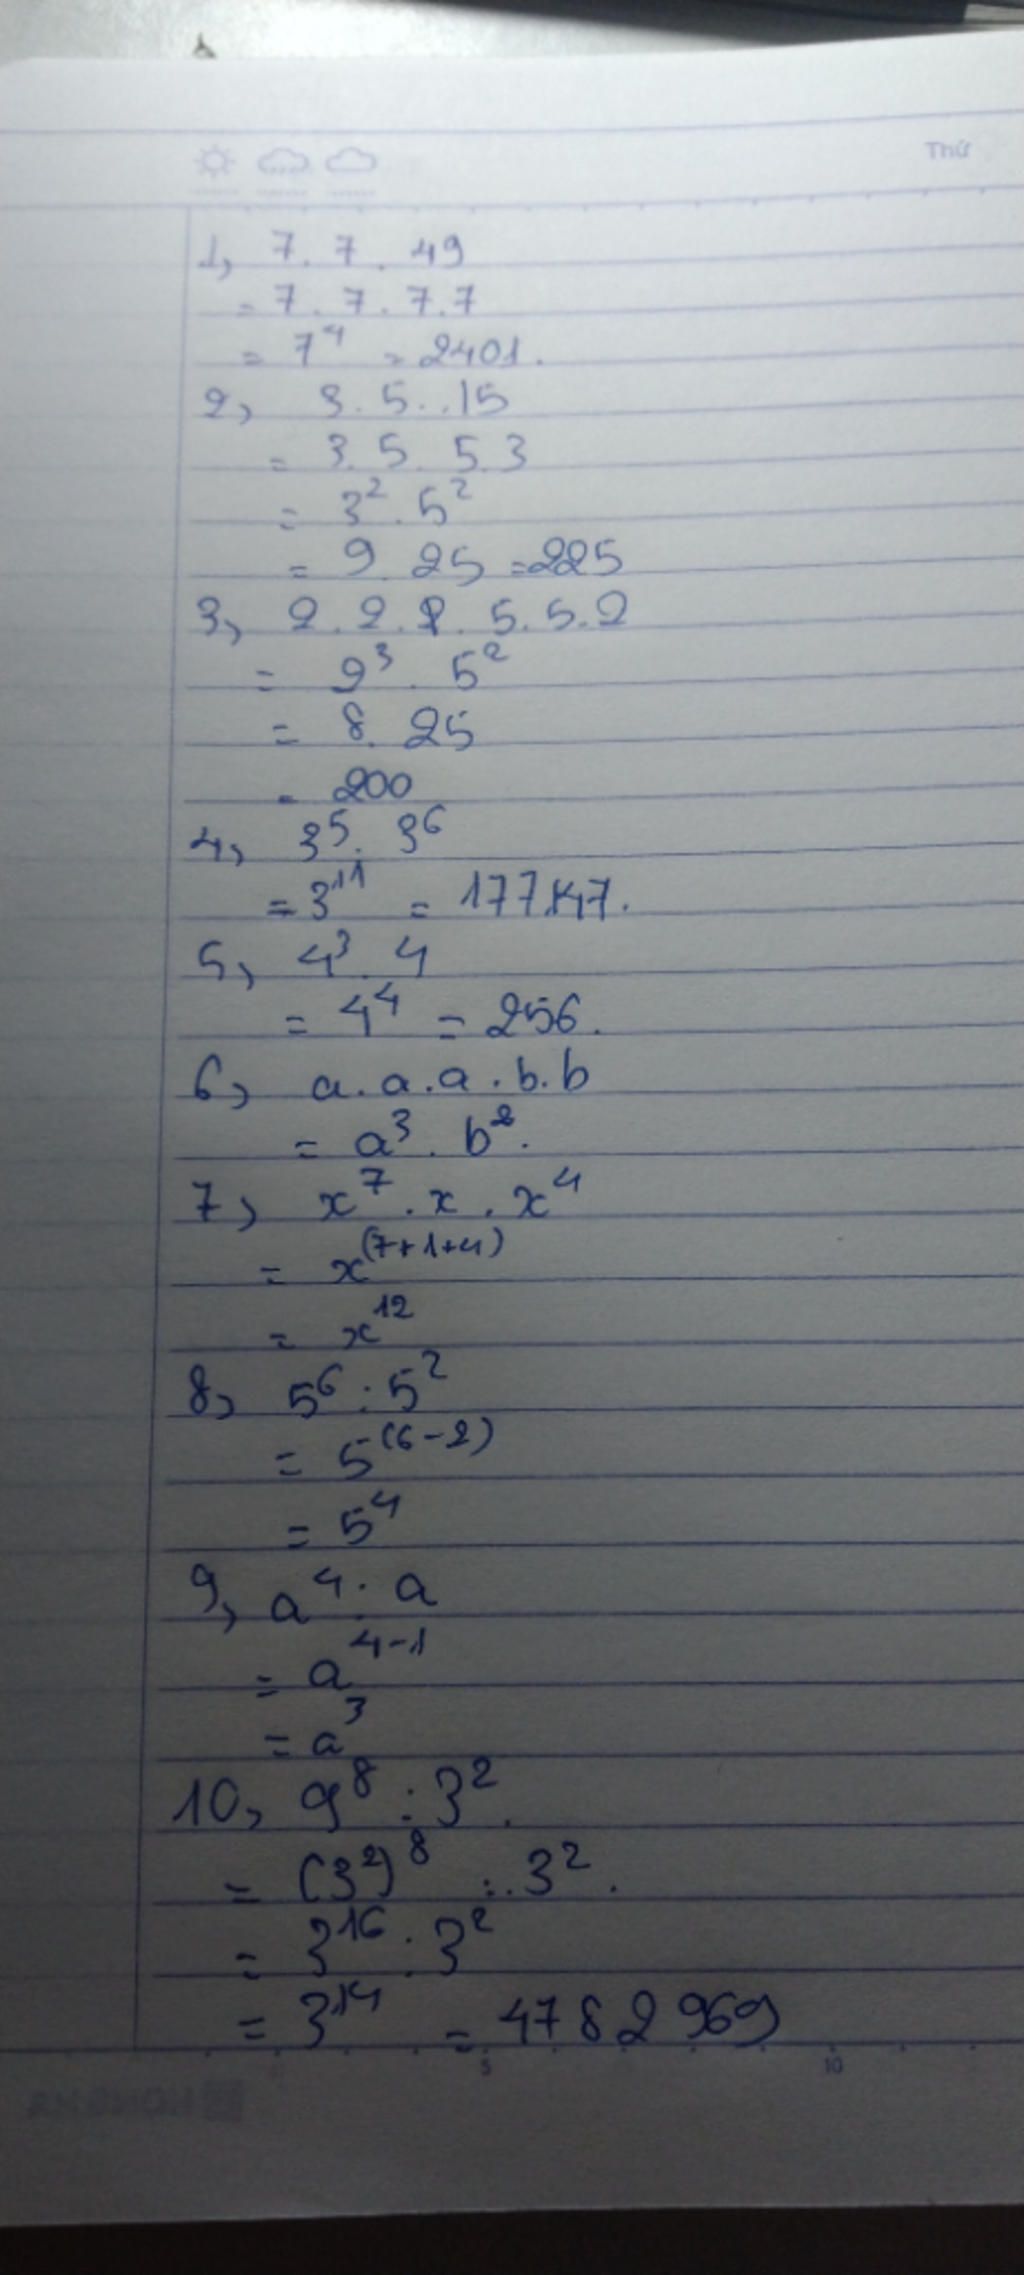 Thứ
1, 7 . 7 . 49
= 7 . 7 . 7 . 7
= 7⁴ = 2401.
2, 3 . 5 . . 15
= 3 . 5 . 5 . 3
= 3² . 5²
= 9 . 25 = 225
3, 2 . 2 . . 5 . 5 . 2
= 2³ . 5²
= 8 . 25
= 200
4, 3⁵ . 3⁶
= 3¹¹ = 177147.
5, 4³ . 4
= 4⁴ = 256.
6, a . a . a . b . b
= a³ . b².
7, x⁷ . x . x⁴
= x⁽⁷⁺¹⁺⁴⁾
= x¹²
8, 5⁶ : 5²
= 5⁽⁶⁻²⁾
= 5⁴
9, a⁴ : a
= a⁴⁻¹
= a³
10, 9⁸ : 3².
= (3²)⁸ : . 3².
= 3¹⁶ : 3²
= 3¹⁴ = 4782969
5 10